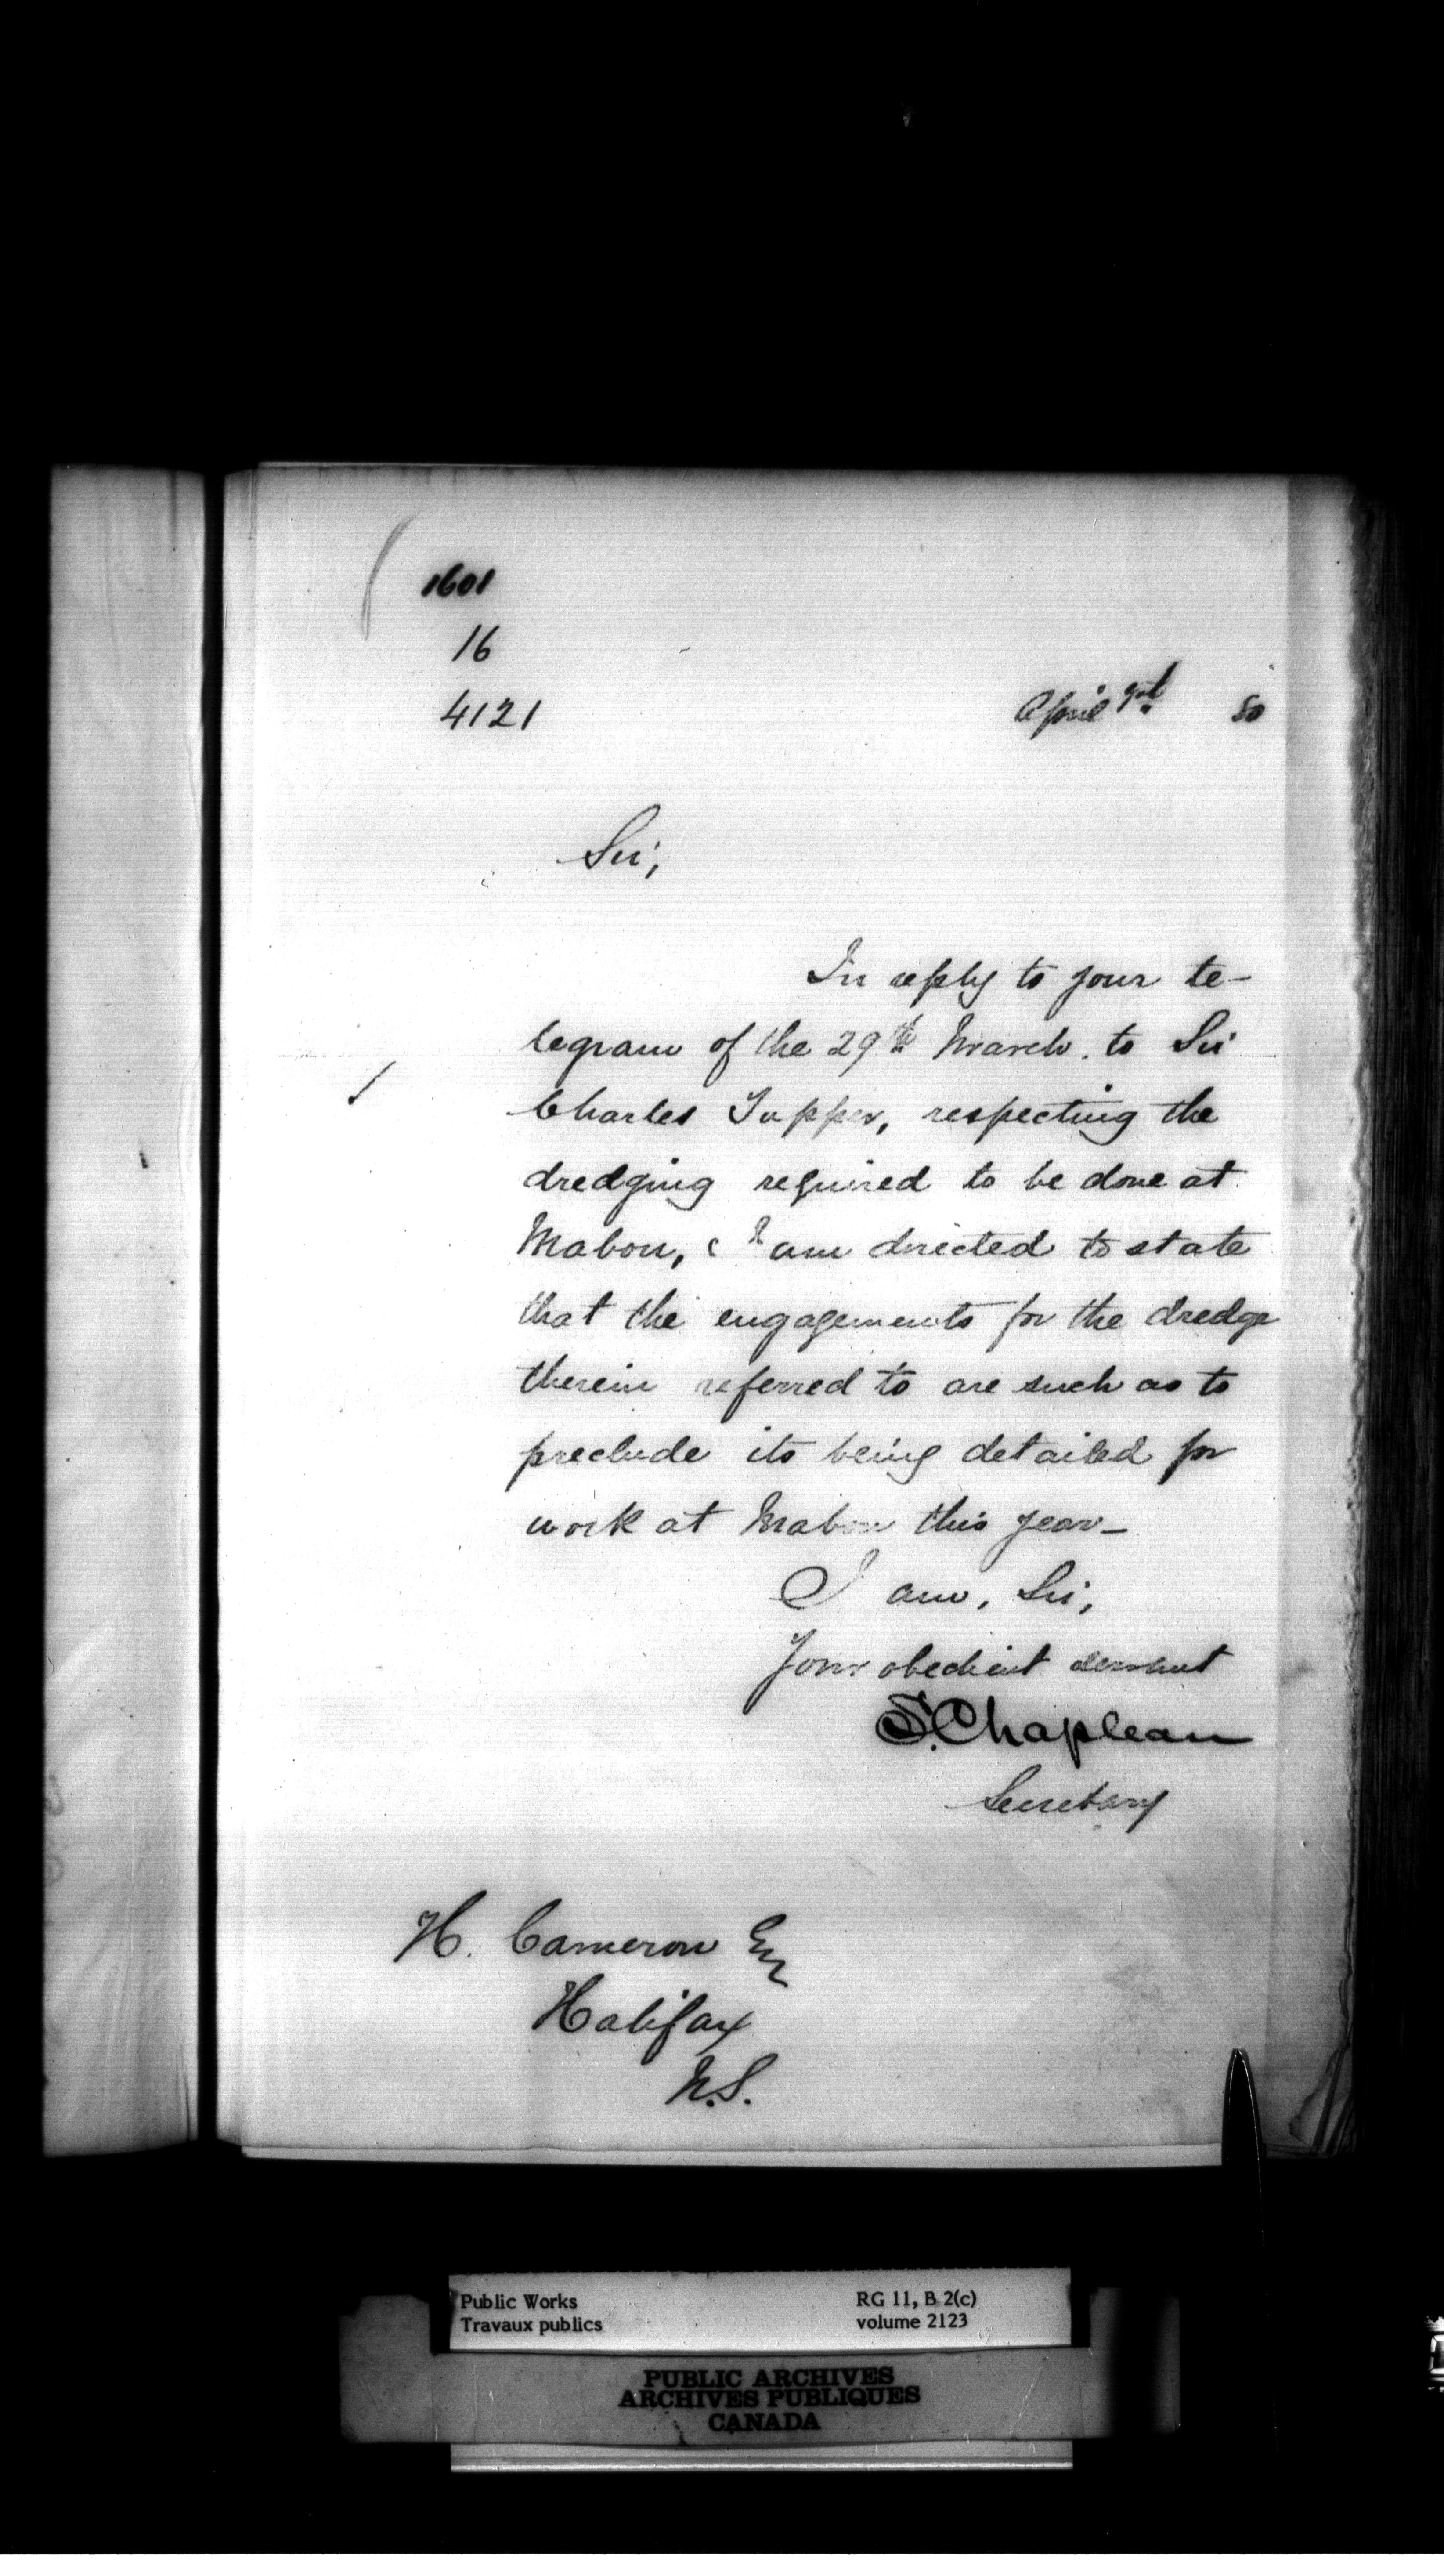 1601
16
4121
April 80
Sir,
In reply to your te-
legram of the 29th March. to Sir
Charles Tupper, respecting the
dredging required to be done at
Mabou, I am directed to state
that the engagements for the dredge
therein referred to are such as to
preclude its being detailed for
work at Mabou this year_
I am, Sir,
Your obedient servant
S. Chapleau
Secretary
H. Cameron Esq
Halifax
N.S.
Public Works
Travaux publics
RG 11, B 2(c)
volume 2123
PUBLIC ARCHIVES
ARCHIVES PUBLIQUES
CANADA